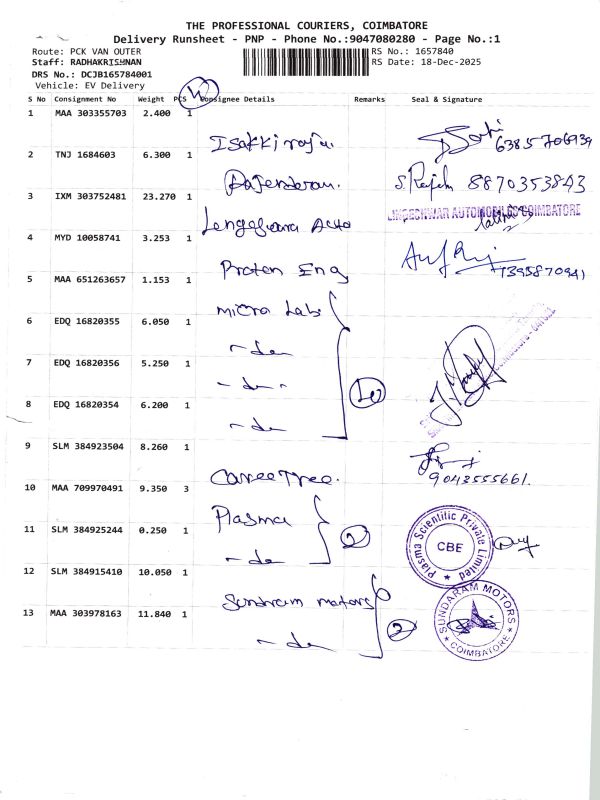 THE PROFESSIONAL COURIERS, COIMBATORE
Delivery Runsheet - PNP - Phone No.:9047080280 - Page No.:1
Route: PCK VAN OUTER
RS No.: 1657840
Staff: RADHAKRISHNAN
RS Date: 18-Dec-2025
DRS No.: DCJB165784001
Vehicle: EV Delivery
S No Consignment No Weight PCS Consignee Details Remarks Seal & Signature
1 MAA 303355703 2.400 1
Isakki raja. 6385706939
2 TNJ 1684603 6.300 1
Rajendran. S. Rajesh 8870353843
3 IXM 303752481 23.270 1
Lingeshwara Auto LINGESHWAR AUTOMOBILES COIMBATORE
4 MYD 10058741 3.253 1
Proton Eng 7395870941
5 MAA 651263657 1.153 1
micro Lab
6 EDQ 16820355 6.050 1
- do -
7 EDQ 16820356 5.250 1
- do -
8 EDQ 16820354 6.200 1
- do -
9 SLM 384923504 8.260 1
CareeTree. 9043555661.
10 MAA 709970491 9.350 3
Plasma
11 SLM 384925244 0.250 1
- do
2
Plasma Scientific Private Limited
CBE
12 SLM 384915410 10.050 1
Sundram motors
13 MAA 303978163 11.840 1
- do
2
SUNDARAM MOTORS
COIMBATORE